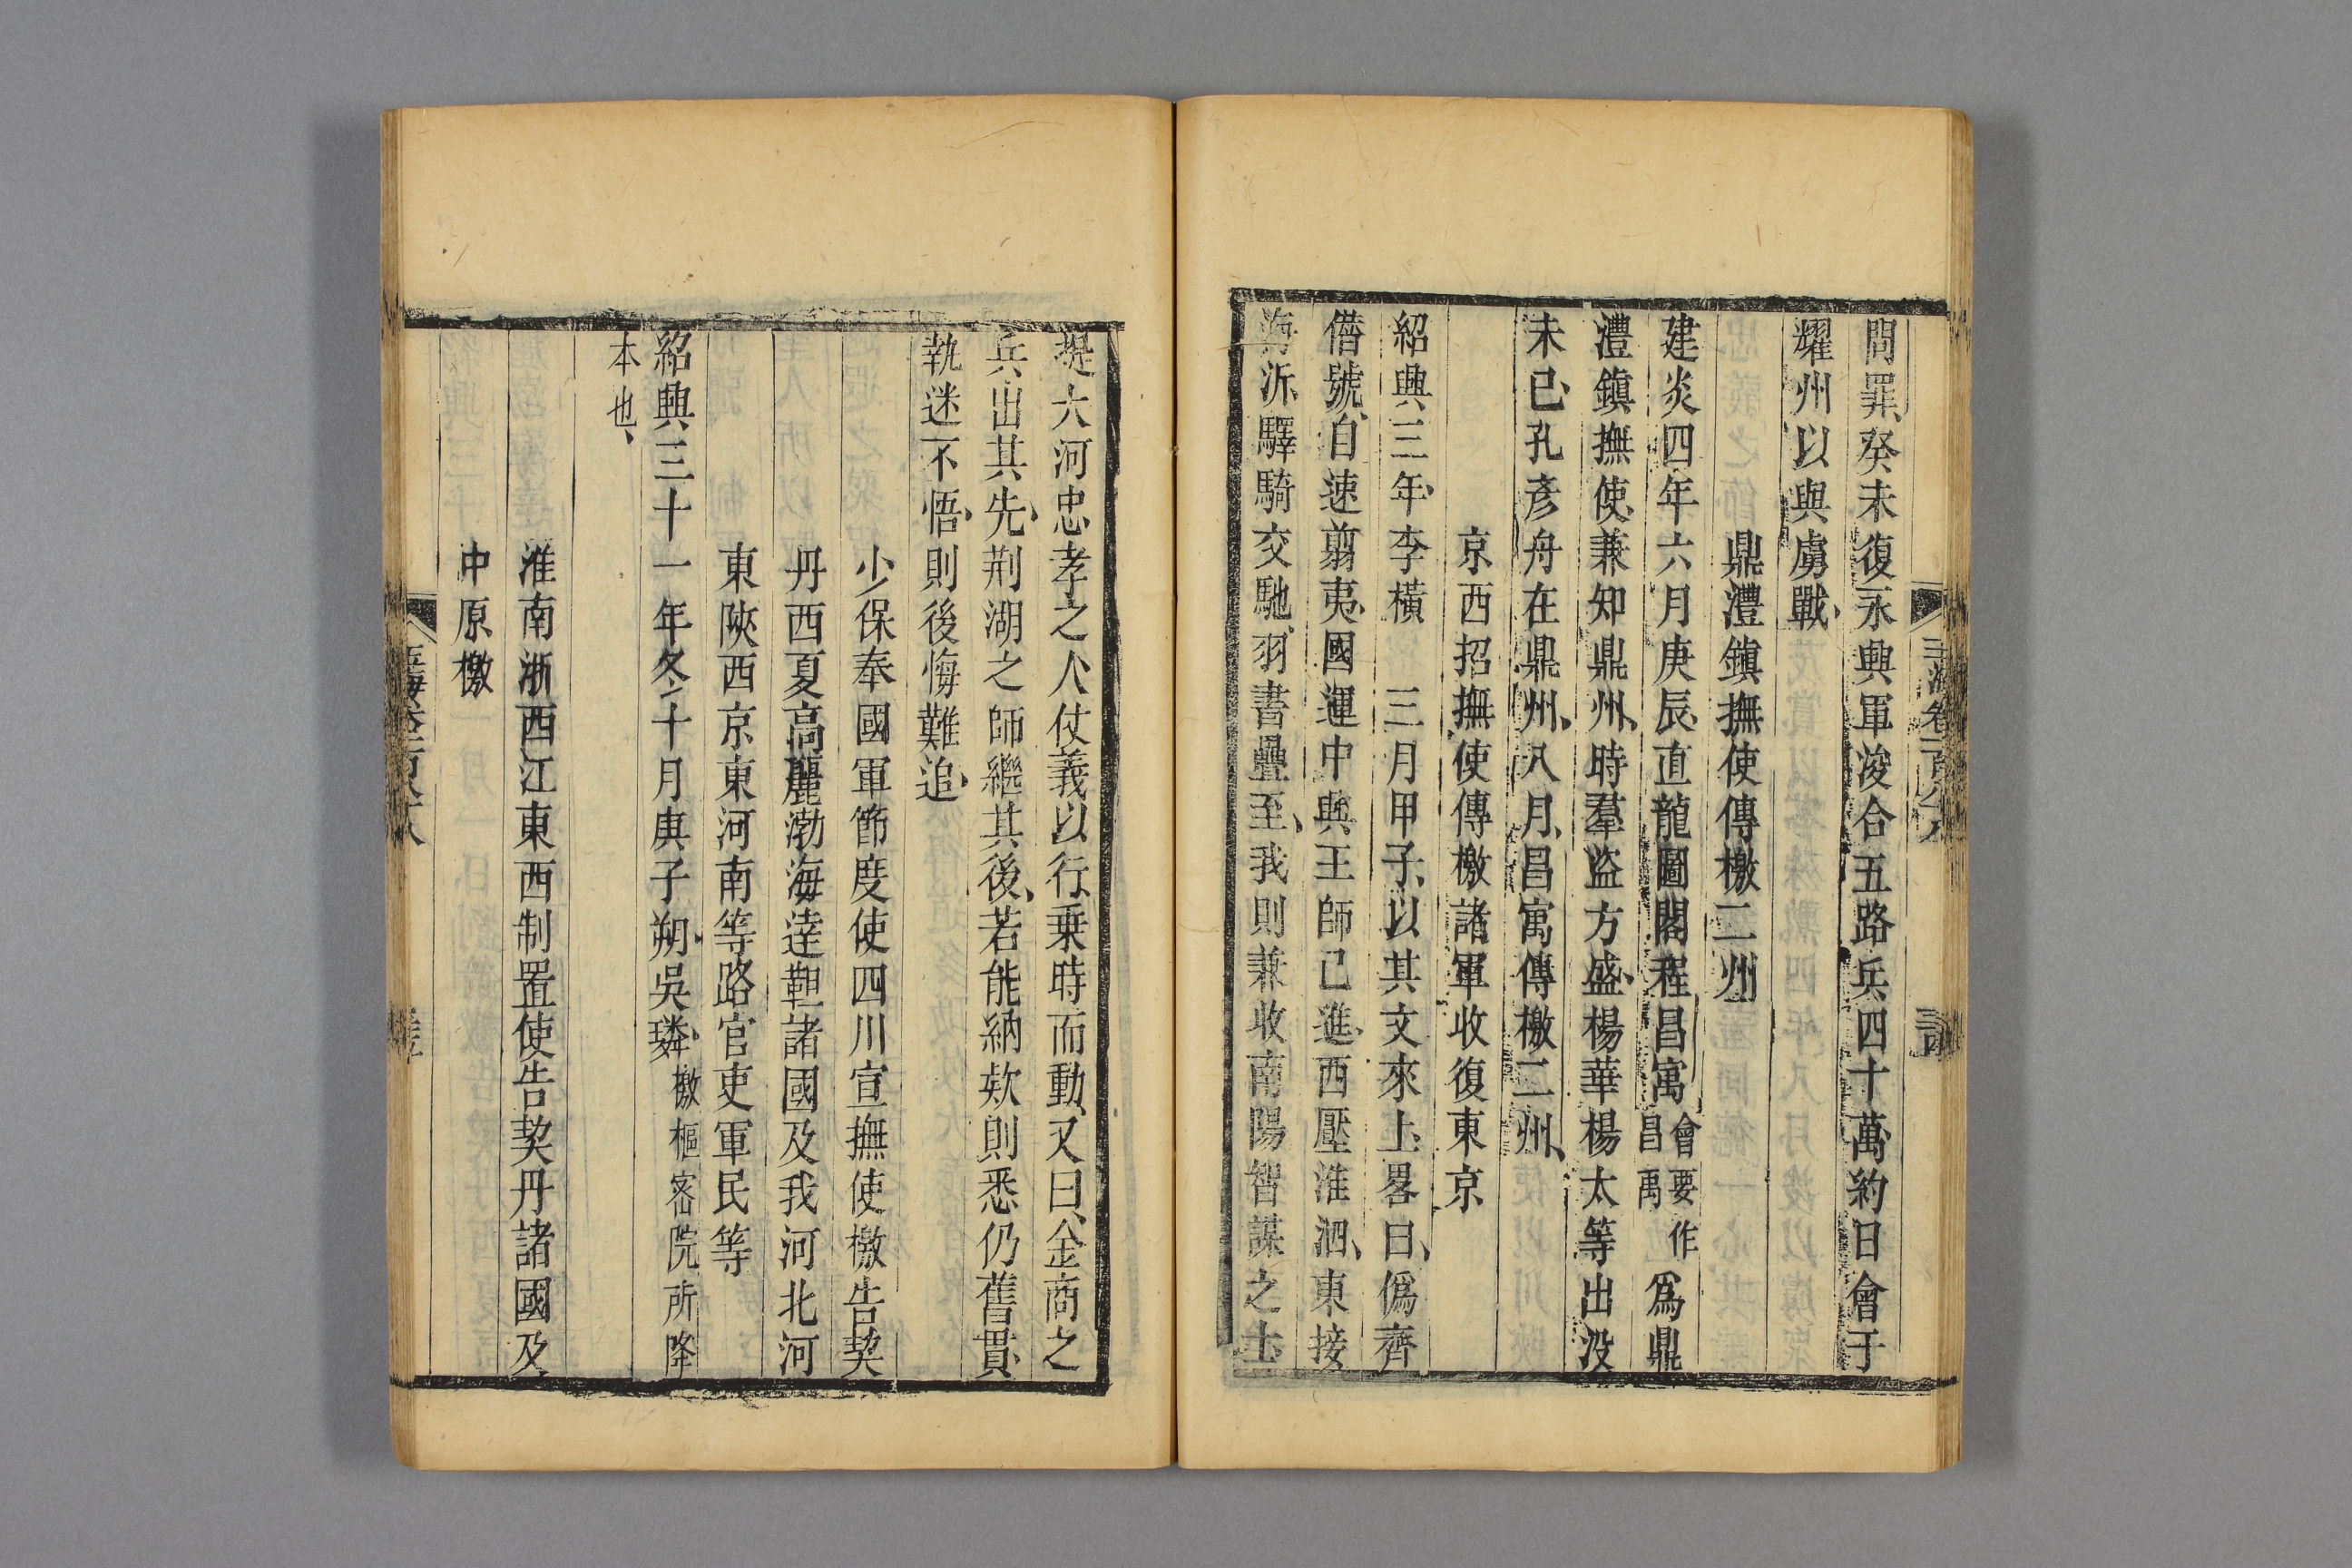 問罪、癸未復永興軍浚合五路兵四十萬、約日會于
耀州以與虜戰、
鼎澧鎮撫使傳檄二州
建炎四年六月庚辰、直龍圖閣程昌寓會要作昌禹為鼎
澧鎮撫使、兼知鼎州、時羣盜方盛、楊華楊太等出沒
未已、孔彥舟在鼎州、八月、昌寓傳檄二州、
京西招撫使傳檄諸軍收復東京
紹興三年、李橫 三月甲子、以其文來上、畧曰、僞齊
僭號、自速翦夷、國運中興、王師已進、西壓淮泗、東接
海沂、驛騎交馳、羽書疊至、我則兼收南陽智謀之士、
提大河忠孝之人、仗義以行、乗時而動、又曰、金商之
兵出其先、荆湖之師繼其後、若能納欵則悉仍舊貫、
執迷不悟、則後悔難追、
少保奉國軍節度使四川宣撫使檄告契
丹西夏高麗渤海逹靼諸國及我河北河
東陝西京東河南等路官吏軍民等
紹興三十一年冬十月庚子朔、吳璘、檄樞密院所降
本也、
淮南浙西江東西制置使告契丹諸國及
中原檄